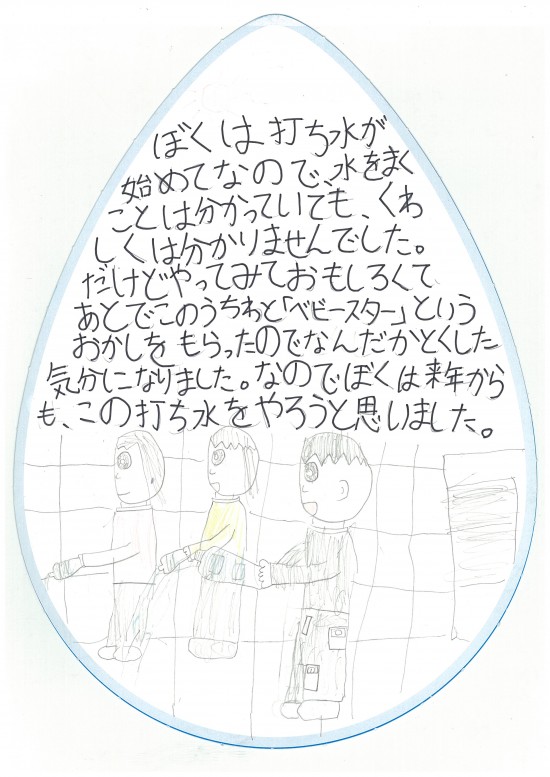 ぼくは打ち水が
始めてなので、水をまく
ことは分かっていても、くわ
しくは分かりませんでした。
だけどやってみておもしろくて、
あとでこのうちわと「ベビースター」という
おかしをもらったのでなんだかとくした
気分になりました。なのでぼくは来年から
も、この打ち水をやろうと思いました。